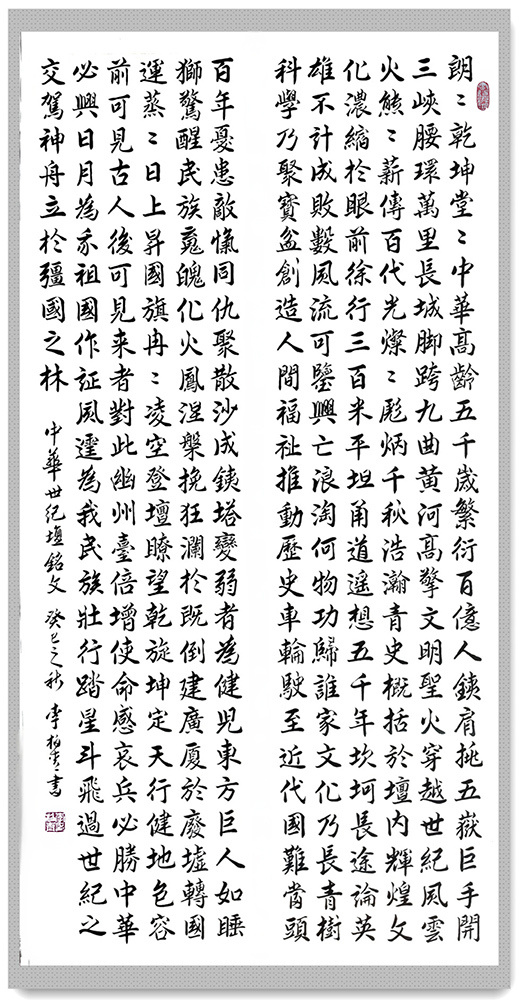 朗〻乾坤堂〻中華高齡五千歲繁衍百億人銕肩挑五嶽巨手開
三峽腰環萬里長城脚跨九曲黄河高擎文明聖火穿越世紀風雲
火熊〻薪傳百代光燦〻彪炳千秋浩瀚青史概括於壇内輝煌文
化濃縮於眼前徐行三百米平坦甬道遥想五千年坎坷長途論英
雄不計成敗數風流可鑒興亡浪淘何物功歸誰家文化乃長青樹
科學乃聚寶盆創造人間福祉推動歷史車輪駛至近代國難當頭
百年憂患敵愾同仇聚散沙成銕塔變弱者為健児東方巨人如睡
獅驚醒民族魂魄化火鳳涅槃挽狂瀾於既倒建廣厦於廢墟轉國
運蒸〻日上昇國旗冉〻凌空登壇瞭望乾旋坤定天行健地色容
前可見古人後可見来者對此幽州臺倍增使命感哀兵必勝中華
必興日月為我祖國作証風霆為我民族壯行踏星斗飛過世紀之
交駕神舟立於疆國之林
中華世紀壇銘文 癸巳之秋 李柏書